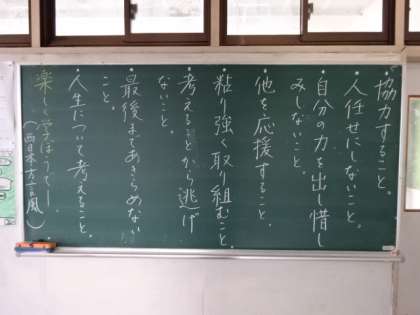 ・協力すること。
・人任せにしないこと。
・自分の力を出し惜し
みしないこと。
・他を応援すること。
・粘り強く取り組むこと。
・考えることから逃げ
ないこと。
・最後まであきらめない
こと。
・人生について考えること。
楽しく学ぼうでー。
(西日本方言風)